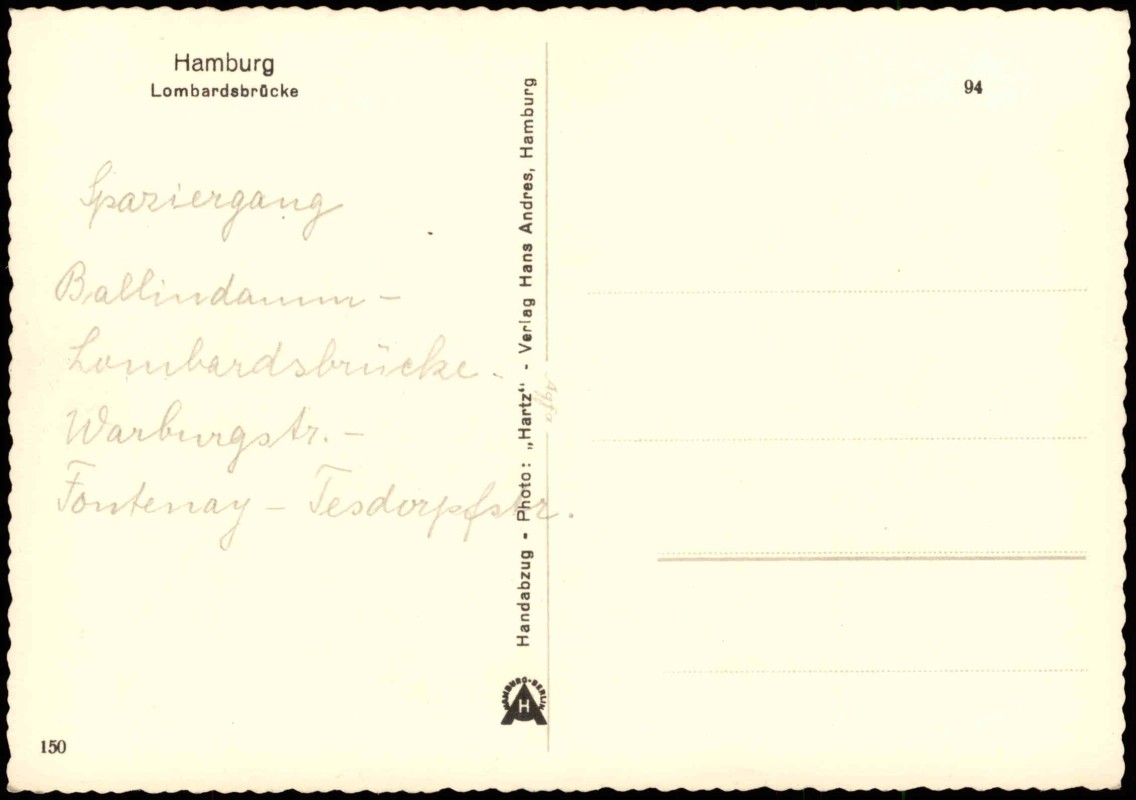 Hamburg
Lombardsbrücke
94
Spaziergang
Ballindamm -
Lombardsbrücke -
Warburgstr. -
Fontenay - Tesdorpfstr.
Handabzug - Photo: „Hartz“ - Verlag Hans Andres, Hamburg
Agfa
HAMBURG-BERLIN
H
150